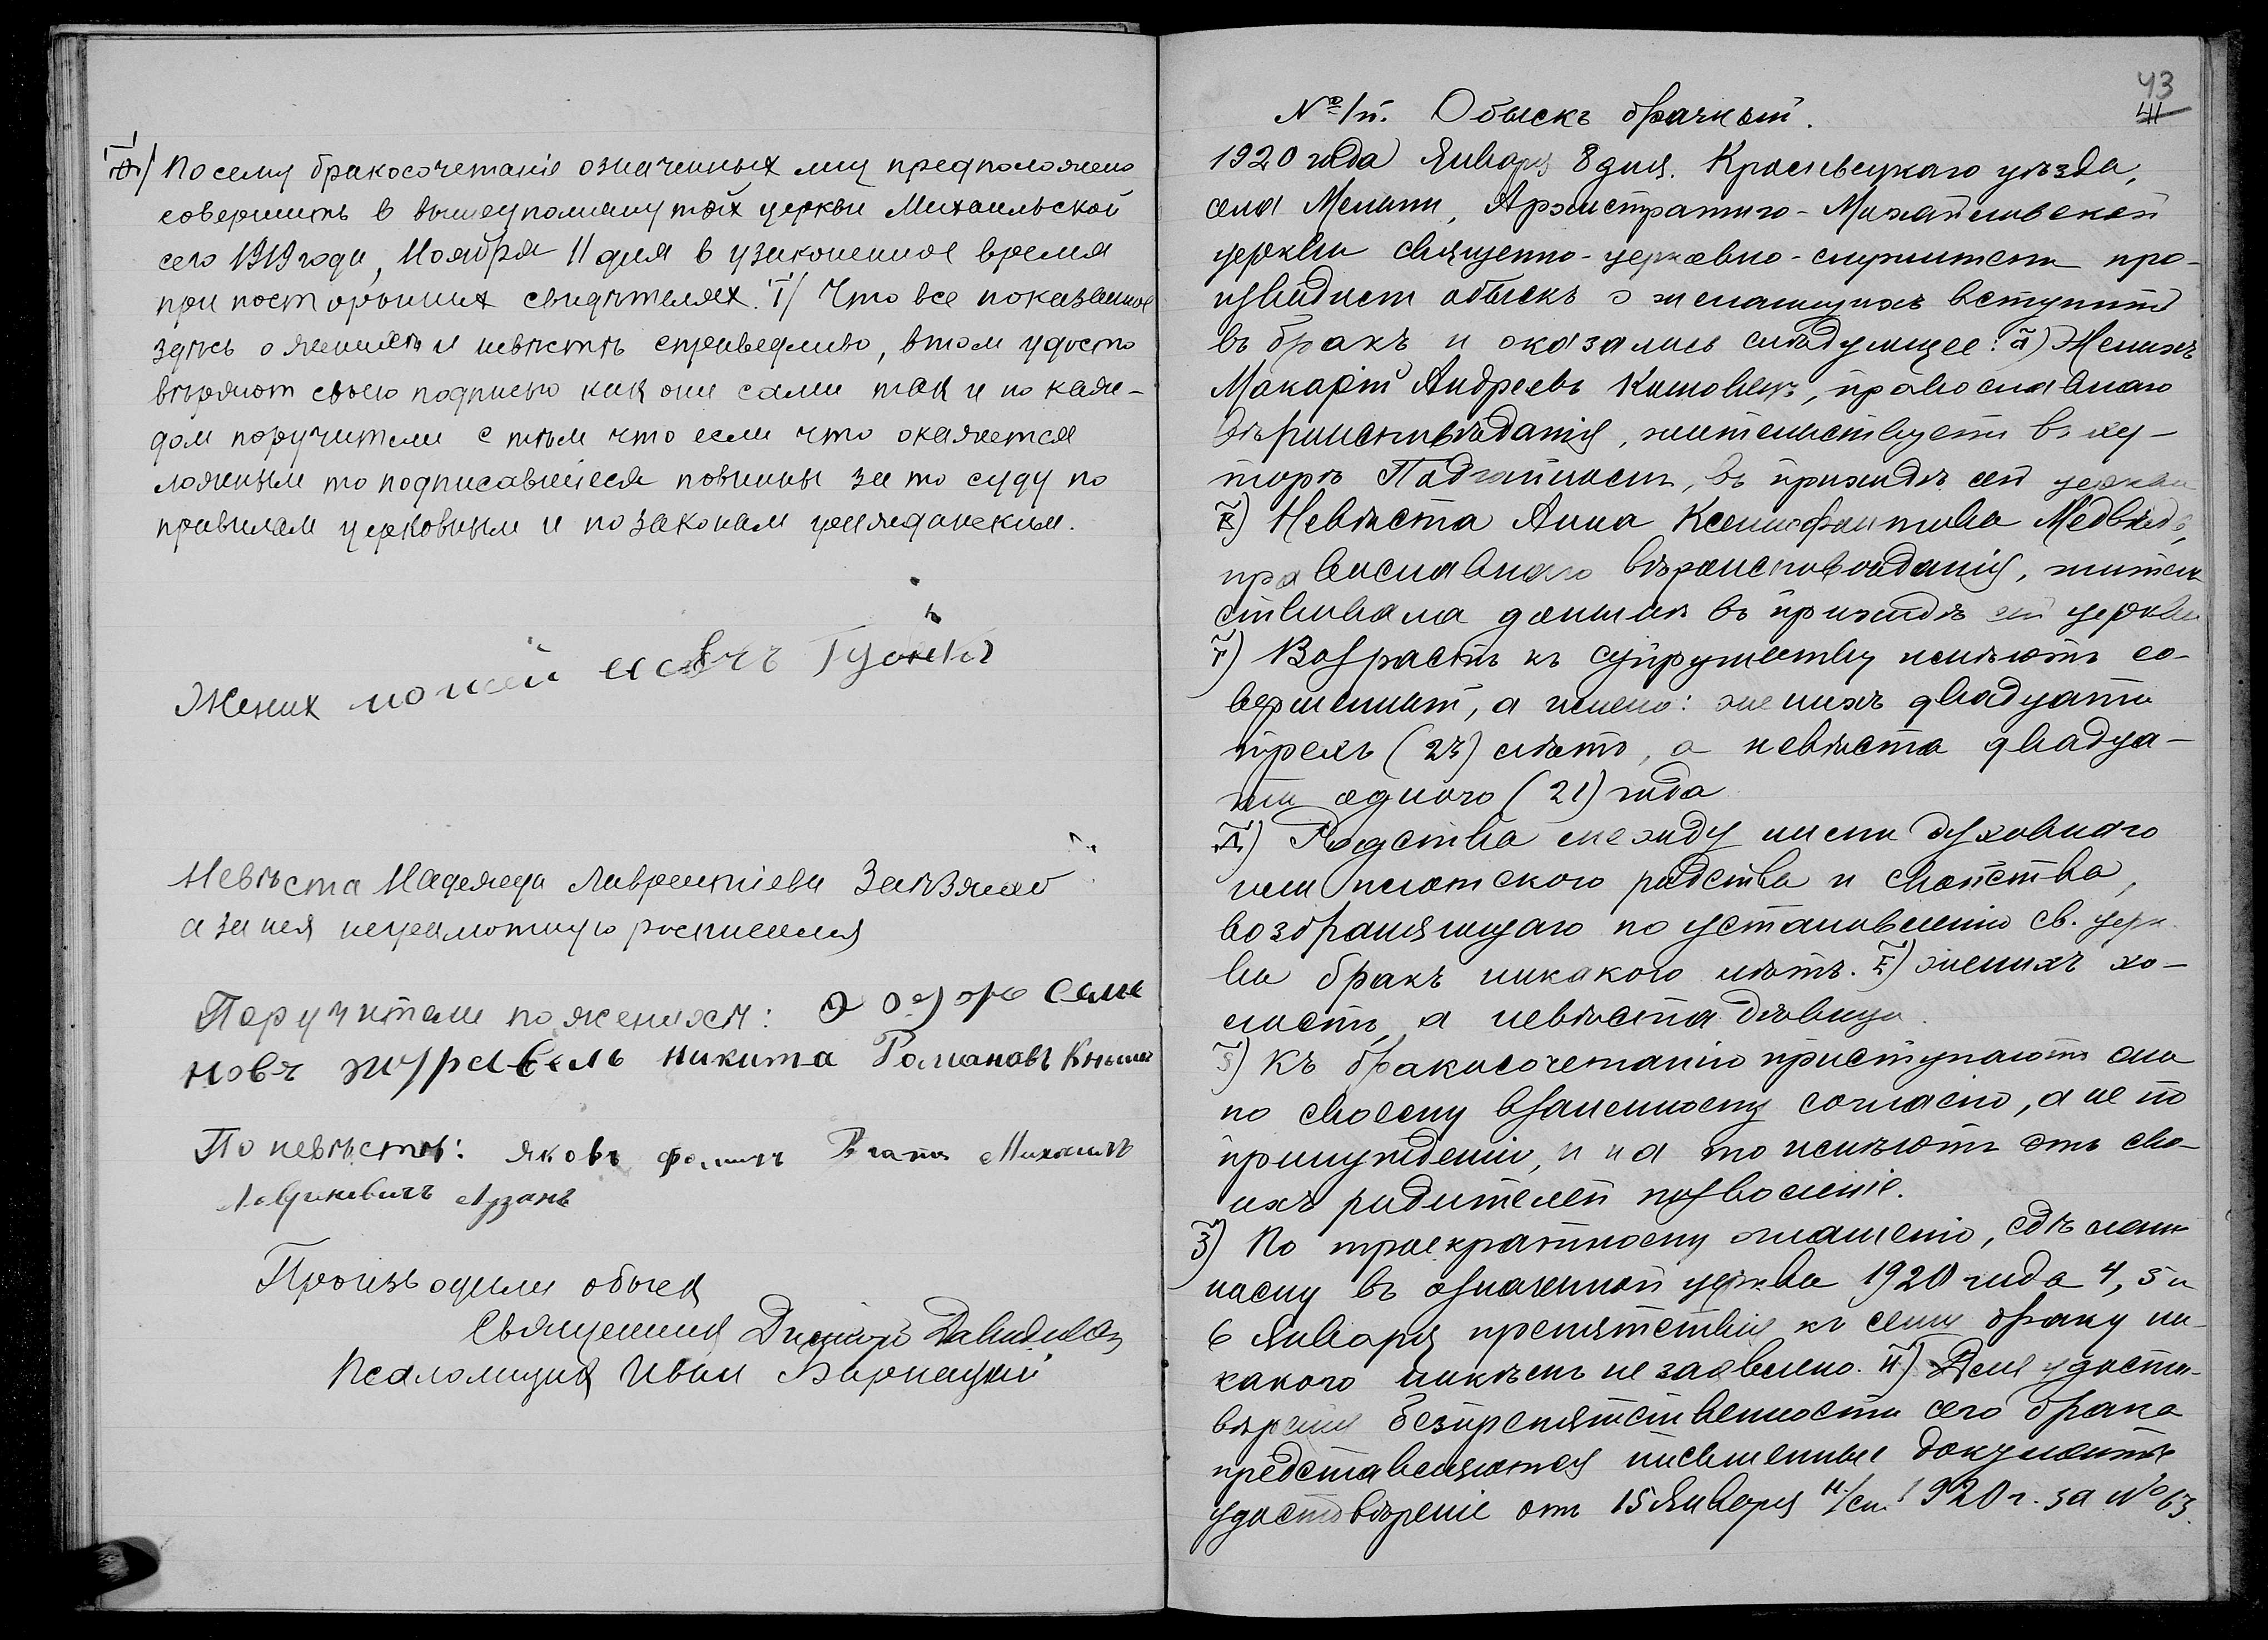 Ѳ) Посему бракосочетаніе означенных лиц предположено
совершить в вышеупомянутой церкви Михаильской
сего 1919 года, Ноября 11 дня в узаконенное время
при посторонних свидѣтелях. І) Что все показанное
здѣсь о женихѣ и невѣстѣ справедливо, в том удосто
вѣряют своею подписью как они сами так и по каж-
дом поручители с тѣм что если что окажется
ложным то подписавшіеся повинны за то суду по
правилам церковным и по законам гражданским.
Жених
Невѣста Надежда Лаврентіева
а за нея неграмотную росписался
Поручители по женихѣ: Ѳедоръ Семе
новъ журавель никита Романовъ
По невѣстѣ: яковъ Михаилъ
Лузанъ
Производили обыск
Священник Димитрій Давидовъ
Псаломщик Иван
43
41
№ 1й. Обыскъ брачный.
1920 года Января 8 дня. уѣзда,
села Мелити, Архистратиго-Михайловской
церкви священно-церковно-служители про-
изводили обыскъ о желающихъ вступить
въ бракъ и оказалось слѣдующее: а) Женихъ
Макарій Андреевъ православнаго
вѣроисповѣданія, жительствуетъ въ ху-
торѣ въ приходѣ сей церкви
в) Невѣста Анна Ксенофонтова Медвѣдь,
православнаго вѣроисповѣданія, житель
ствовала донынѣ въ приходѣ сей церкви
г) Возрастъ къ супружеству имѣютъ со-
вершенный, а именно: женихъ двадцати
трехъ (23) лѣтъ, а невѣста двадца-
ти одного (21) года
д) Родства между ними духовного
или плотского родства и свойства,
возбраняющаго по установленію св. церк
ви бракъ никакого нѣтъ. е) женихъ хо-
лостъ, а невѣста дѣвица.
ѕ) Къ бракосочетанію приступаютъ они
по своему взаимному согласію, а не по
принужденію, и на то имѣютъ отъ сво-
ихъ родителей позволеніе.
з) По троекратному оглашенію, сдѣлан
ному въ означенной церкви 1920 года 4, 5 и
6 Января препятствія къ сему браку ни-
какого никѣмъ не заявлено. и) Для удосто-
вѣренія безпрепятственности сего брака
представляются письменные документы
удостовѣреніе отъ 15 Января н/ст. 1920 г. за № 63.